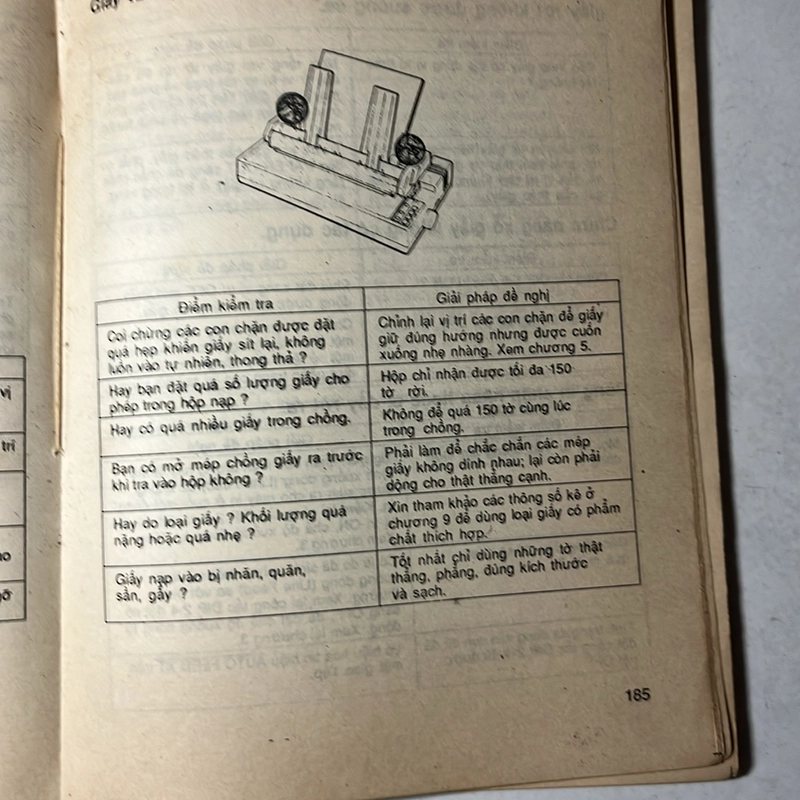 Giấy
Điểm kiểm tra
Giải pháp đề nghị
Coi chừng các con chặn được đặt
quá hẹp khiến giấy sít lại, không
luồn vào tự nhiên, thong thả ?
Chỉnh lại vị trí các con chặn để giấy
giữ đúng hướng nhưng được cuốn
xuống nhẹ nhàng. Xem chương 5.
Hay bạn đặt quá số lượng giấy cho
phép trong hộp nạp ?
Hộp chỉ nhận được tối đa 150
tờ rời.
Hay có quá nhiều giấy trong chồng.
Không để quá 150 tờ cùng lúc
trong chồng.
Bạn có mở mép chồng giấy ra trước
khi tra vào hộp không ?
Phải làm để chắc chắn các mép
giấy không dính nhau; lại còn phải
động cho thật thẳng cạnh.
Hay do loại giấy ? Khối lượng quá
nặng hoặc quá nhẹ ?
Xin tham khảo các thông số kê ở
chương 9 để dùng loại giấy có phẩm
chất thích hợp.
Giấy nạp vào bị nhăn, quăn,
sần, gẫy ?
Tốt nhất chỉ dùng những tờ thật
thẳng, phẳng, đúng kích thước
và sạch.
185
vị
trí